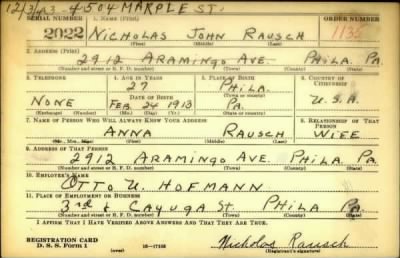 12/3/43 - 4504 MARPLE ST.
SERIAL NUMBER 1. NAME (Print) ORDER NUMBER
2022 NICHOLAS JOHN RAUSCH 1135
(First) (Middle) (Last)
2. ADDRESS (Print)
2912 ARAMINGO AVE. PHILA. PA.
(Number and street or R. F. D. number) (Town) (County) (State)
3. TELEPHONE 4. AGE IN YEARS 5. PLACE OF BIRTH 6. COUNTRY OF CITIZENSHIP
27 PHILA.
DATE OF BIRTH (Town or county)
NONE FEB. 24 1913 PA. U.S.A.
(Exchange) (Number) (Mo.) (Day) (Yr.) (State or country)
7. NAME OF PERSON WHO WILL ALWAYS KNOW YOUR ADDRESS 8. RELATIONSHIP OF THAT PERSON
ANNA RAUSCH WIFE
(Mr., Mrs., Miss) (First) (Middle) (Last)
9. ADDRESS OF THAT PERSON
2912 ARAMINGO AVE. PHILA PA.
(Number and street or R. F. D. number) (Town) (County) (State)
10. EMPLOYER'S NAME
OTTO U. HOFMANN
11. PLACE OF EMPLOYMENT OR BUSINESS
3rd & CAYUGA ST. PHILA PA.
(Number and street or R. F. D. number) (Town) (County) (State)
I AFFIRM THAT I HAVE VERIFIED ABOVE ANSWERS AND THAT THEY ARE TRUE.
REGISTRATION CARD
D. S. S. Form 1 (over) 16-17105 Nicholas Rausch
(Registrant's signature)